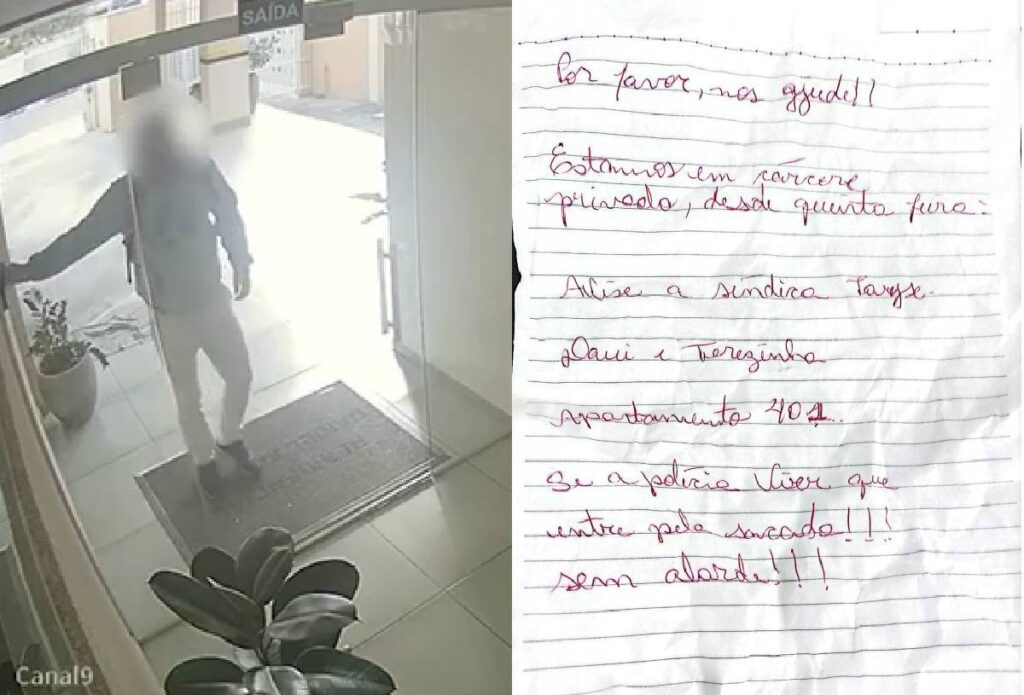 SAÍDA
Canal9
Por favor, nos ajude!!
Estamos em cárcere
privado, desde quinta feira:
Avise a síndica Tayse.
Davi e Terezinha
Apartamento 401..
Se a polícia vier que
entre pela sacada!!!
sem alarde!!!